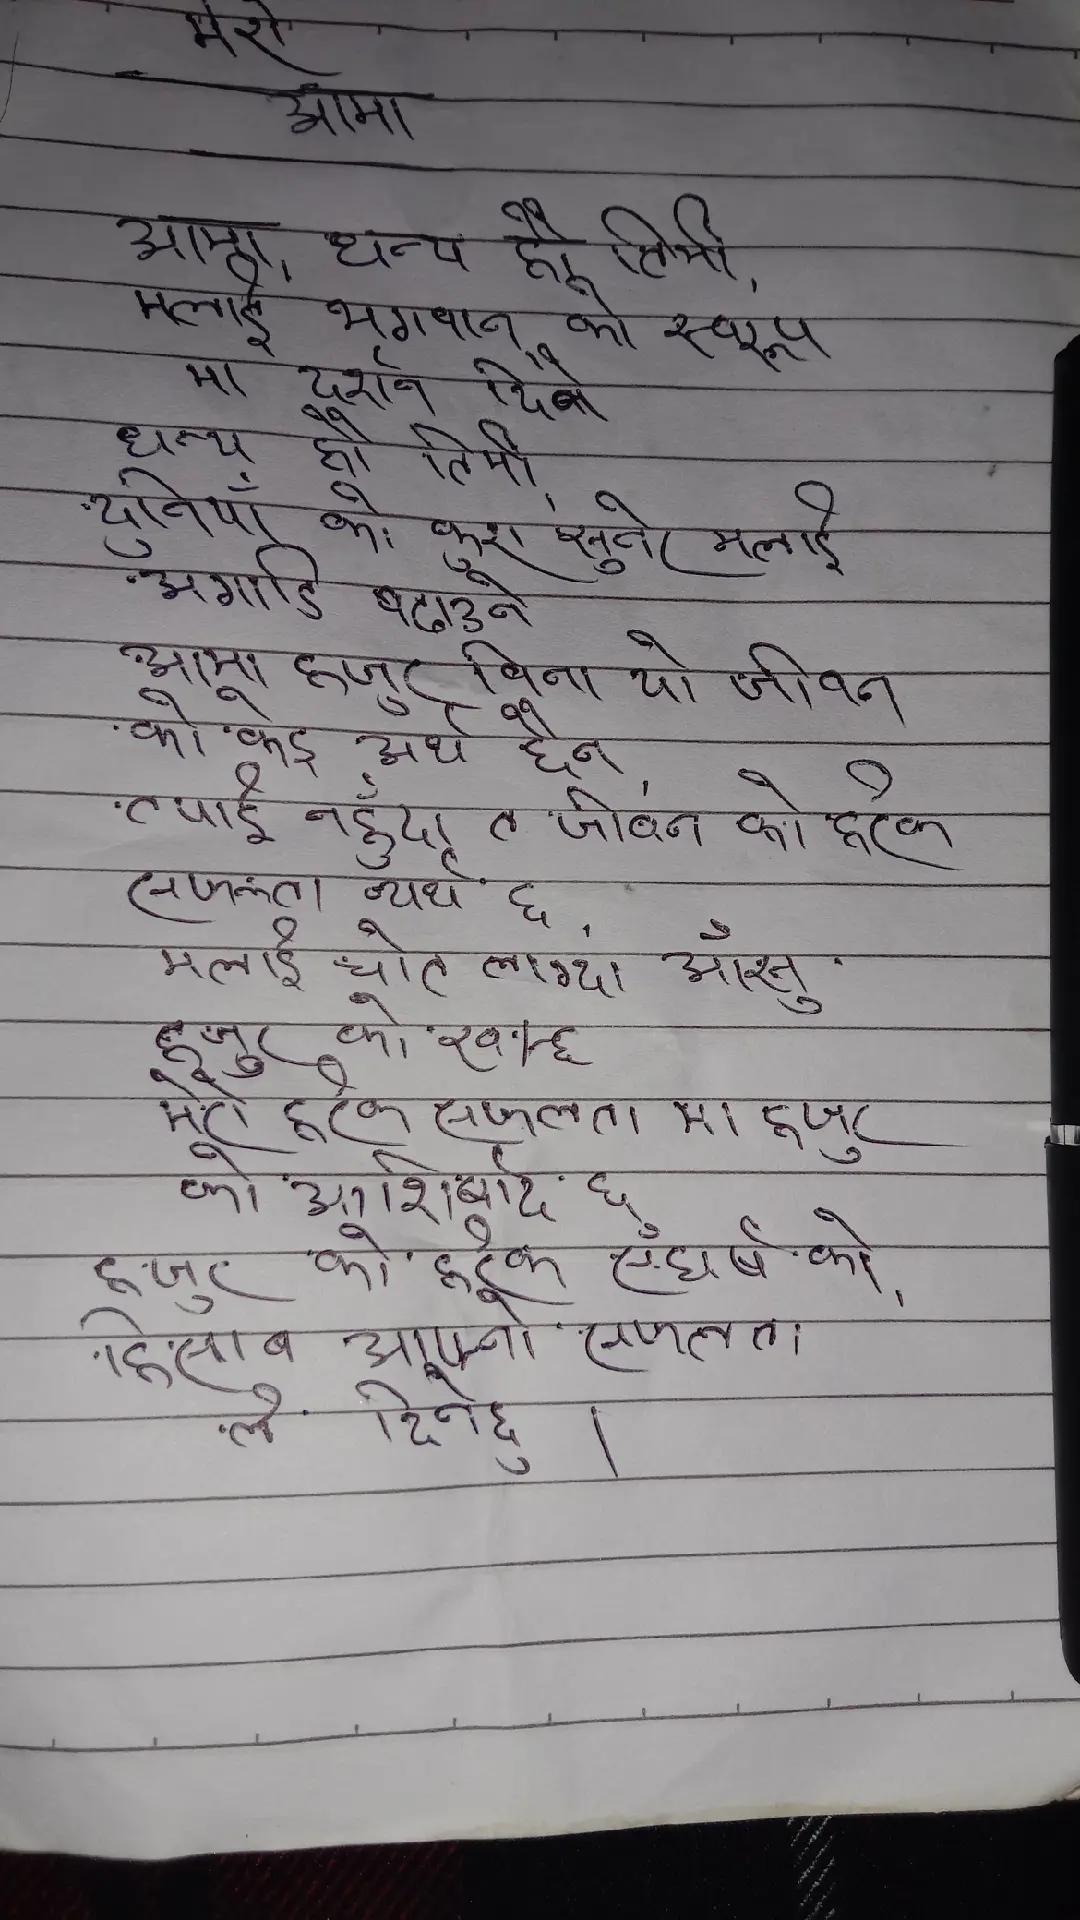 मेरो
आमा
आमा, धन्य हौ तिमी,
मलाई भगवान को स्वरूप
मा दर्शन दिने
धन्य हौ तिमी,
दुनियाँ को कुरा सुनेर मलाई
अगाडि बढाउने
आमा हजुर विना यो जीवन
को केइ अर्थ छैन,
तपाई नहुँदा त जीवन को हरेक
सफलता व्यर्थ छ,
मलाई चोट लाग्दा आँसु
हजुर को खस्छ
मेरो हरेक सफलता मा हजुर
को आशिर्बाद छ
हजुर को हरेक संघर्ष को,
हिसाब आफ्नो सफलता
ले दिनेछु ।